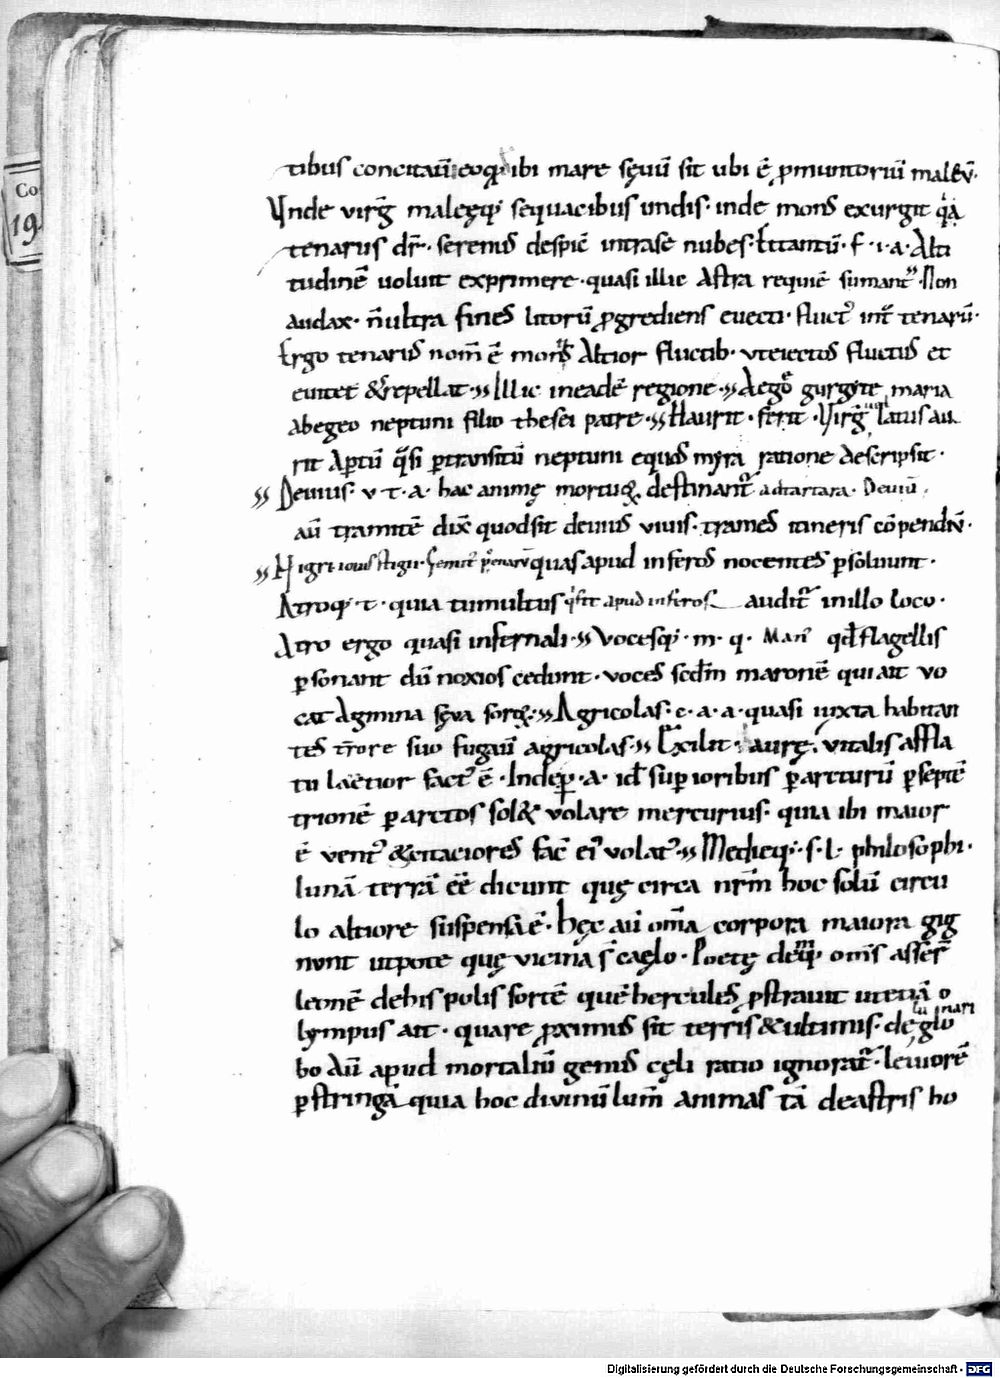 Co
19
tibus concitatū eoq; ibi mare sęuū sit ubi ē ꝓmuntoriū
Vnde virḡ malęęq; sequacibus undis· inde mons exurgit
tenarus dr̄· seremus despicē intrase nubes· f· i· a· Alti
tudinē uoluit exprimere· quasi illic Astra requiē sumant· Non
audax· n̄ ultra fines litorū ꝓgrediens euecti· fluct᾽ int̄ tenarū·
Ergo tenarus nom̄ ē mons Altior fluctib· vteiectos fluctus et
euitet &repellat· Illic ineadē regione· Aegeo gurgite maria
abegeo neptuni filio thesei patre· Haurit· ferit· Virḡ latus au
rit Aptū q̄si ꝑtransitū neptuni equos myra ratione descripsit·
Deuius· v· t· a· hac animę mortuoꝝ destinant᾽ ad tartara· Deuiū
aū tramitē dix̄ quodsit deuius viuis· trames itineris cōpendiū·
Nigri iouis stigii· quas apud inferos nocentes ꝑsoluunt·
Atroq; t· quia tumultus q̄ fit apud inferos audit᾽ inillo loco·
Atro ergo quasi infernali· Vocesq; m· q· qd̄ flagellis
ꝑsonant dū noxios cedunt· voces scdm̄ maronē qui ait vo
cat Agmina sęua soroꝝ· Agricolas· e· a· a· quasi iuxta habitan
tes t̄rore suo fugaū agricolas· Exilit· aurę· vitalis affla
tu laetior fact᾽ ē· Indeꝑ· a· id ē suꝑioribus ꝑarcturū ꝑseptē
trionē ꝑarctos sol& volare mercurius· quia ibi maior
ē vent᾽ &citaciores fac̄ ei᾽ volat᾽· Medieq; s· l· philosophi·
lunā terrā eē dicunt quę circa nrm̄ hoc solū circu
lo altiore suspensa ē· hęc aū om̄a corpora maiora gig
nunt utpote quę vicina s̄ caęlo· Poetę deniq; om̄s asser̄
leonē dehis polis fortē quē hercules ꝓstrauit utetiā o
lympus ait· quare ꝓximus sit terris &ultimus· de glo
luinari
bo Aū apud mortaliū genus cęli ratio ignorat᾽· leuiorē
ꝑstringā quia hoc diuinū lum̄ animas tā deastris ho
Digitalisierung gefördert durch die Deutsche Forschungsgemeinschaft - DFG